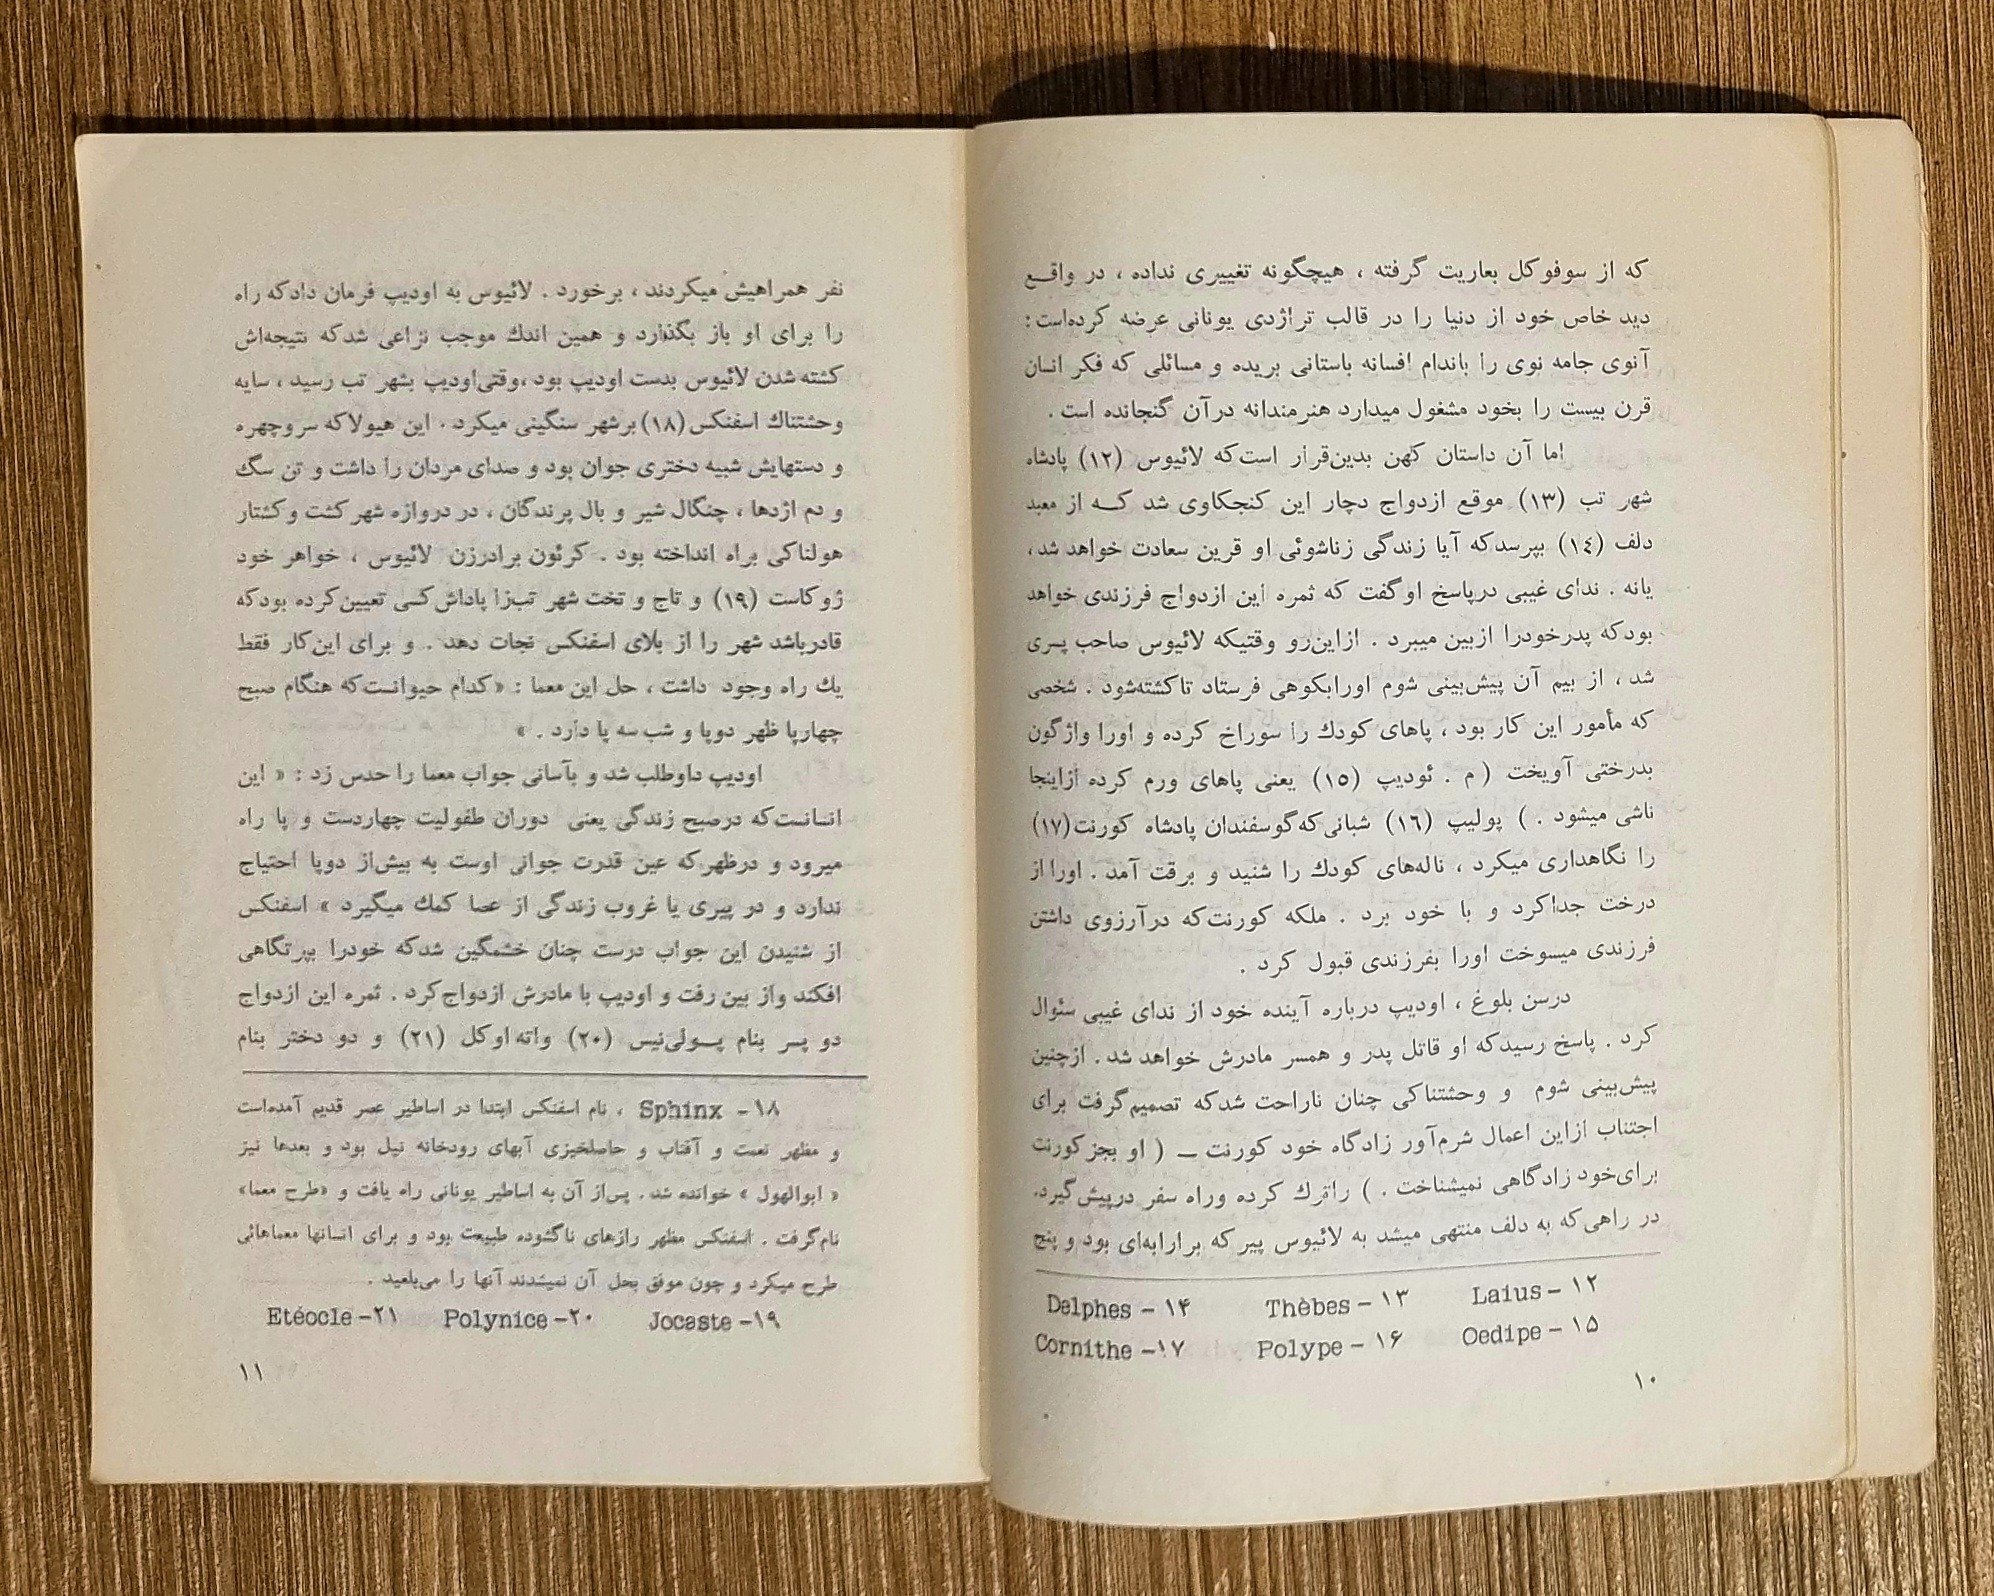 که از سوفوکل بعاریت گرفته ، هیچگونه تغییری نداده ، در واقـع
دید خاص خود از دنیا را در قالب تراژدی یونانی عرضه کرده‌است :
آنوی جامه نوی را باندام افسانه باستانی بریده و مسائلی که فکر انسان
قرن بیست را بخود مشغول میدارد هنرمندانه درآن گنجانده است .
اما آن داستان کهن بدین‌قرار است‌که لائیوس (۱۲) پادشاه
شهر تب (۱۳) موقع ازدواج دچار این کنجکاوی شد کـه از معبد
دلف (۱٤) بپرسدکه آیا زندگی زناشوئی او قرین سعادت خواهد شد،
یانه . ندای غیبی درپاسخ اوگفت که ثمره این ازدواج فرزندی خواهد
بودکه پدرخودرا ازبین میبرد . ازاین‌رو وقتیکه لائیوس صاحب پسری
شد ، از بیم آن پیش‌بینی شوم اورابکوهی فرستاد تاکشته‌شود . شخصی
که مأمور این کار بود ، پاهای کودك را سوراخ کرده و اورا واژگون
بدرختی آویخت ( م . ئودیپ (۱٥) یعنی پاهای ورم کرده ازاینجا
ناشی میشود . ) پولیپ (۱٦) شبانی‌که‌گوسفندان پادشاه کورنت(۱۷)
را نگاهداری میکرد ، ناله‌های کودك را شنید و برقت آمد . اورا از
درخت جداکرد و با خود برد . ملکه کورنت‌که درآرزوی داشتن
فرزندی میسوخت اورا بفرزندی قبول کرد .
درسن بلوغ ، اودیپ درباره آینده خود از ندای غیبی سئوال
کرد . پاسخ رسیدکه او قاتل پدر و همسر مادرش خواهد شد . ازچنین
پیش‌بینی شوم و وحشتناکی چنان ناراحت شدکه تصمیم‌گرفت برای
اجتناب ازاین اعمال شرم‌آور زادگاه خود کورنت ــ ( او بجز کورنت
برای‌خود زادگاهی نمیشناخت . ) راترك کرده وراه سفر درپیش‌گیرد.
در راهی‌که به دلف منتهی میشد به لائیوس پیر که برارابه‌ای بود و پنج
۱۲ – Laius ۱۳ – Thèbes ۱۴ – Delphes
۱۵ – Oedipe ۱۶ – Polype ۱۷– Cornithe
۱۰
نفر همراهیش میکردند ، برخورد . لائیوس به اودیپ فرمان دادکه راه
را برای او باز بگذارد و همین اندك موجب نزاعی شدکه نتیجه‌اش
کشته شدن لائیوس بدست اودیپ بود ،وقتی‌اودیپ بشهر تب رسید ، سایه
وحشتناك اسفنکس (۱۸) برشهر سنگینی میکرد . این هیولاکه سروچهره
و دستهایش شبیه دختری جوان بود و صدای مردان را داشت و تن سگ
و دم اژدها ، چنگال شیر و بال پرندگان ، در دروازه شهر کشت و کشتار
هولناکی براه انداخته بود . کرئون برادرزن لائیوس ، خواهر خود
ژوکاست (۱۹) و تاج و تخت شهر تب‌را پاداش‌کسی تعیین‌کرده بودکه
قادرباشد شهر را از بلای اسفنکس نجات دهد . و برای این‌کار فقط
یك راه وجود داشت ، حل این معما : « کدام حیوانست‌که هنگام صبح
چهارپا ظهر دوپا و شب سه پا دارد . »
اودیپ داوطلب شد و بآسانی جواب معما را حدس زد : « این
انسانست‌که درصبح زندگی یعنی دوران طفولیت چهاردست و پا راه
میرود و درظهرکه عین قدرت جوانی اوست به بیش‌از دوپا احتیاج
ندارد و در پیری یا غروب زندگی از عصا کمك میگیرد » اسفنکس
از شنیدن این جواب درست چنان خشمگین شدکه خودرا بپرتگاهی
افکند واز بین رفت و اودیپ با مادرش ازدواج‌کرد . ثمره این ازدواج
دو پسر بنام پـولی‌نیس (۲۰) واته‌اوکل (۲۱) و دو دختر بنام
۱۸– Sphinx ، نام اسفنکس ابتدا در اساطیر عصر قدیم آمده‌است
و مظهر نعمت و آفتاب و حاصلخیزی آبهای رودخانه نیل بود و بعدها نیز
« ابوالهول » خوانده شد . پس‌از آن به اساطیر یونانی راه یافت و «طرح معما»
نام‌گرفت . اسفنکس مظهر رازهای ناگشوده طبیعت بود و برای انسانها معماهائی
طرح میکرد و چون موفق بحل آن نمیشدند آنها را می‌بلعید .
۱۹– Jocaste ۲۰– Polynice ۲۱– Etéocle
۱۱